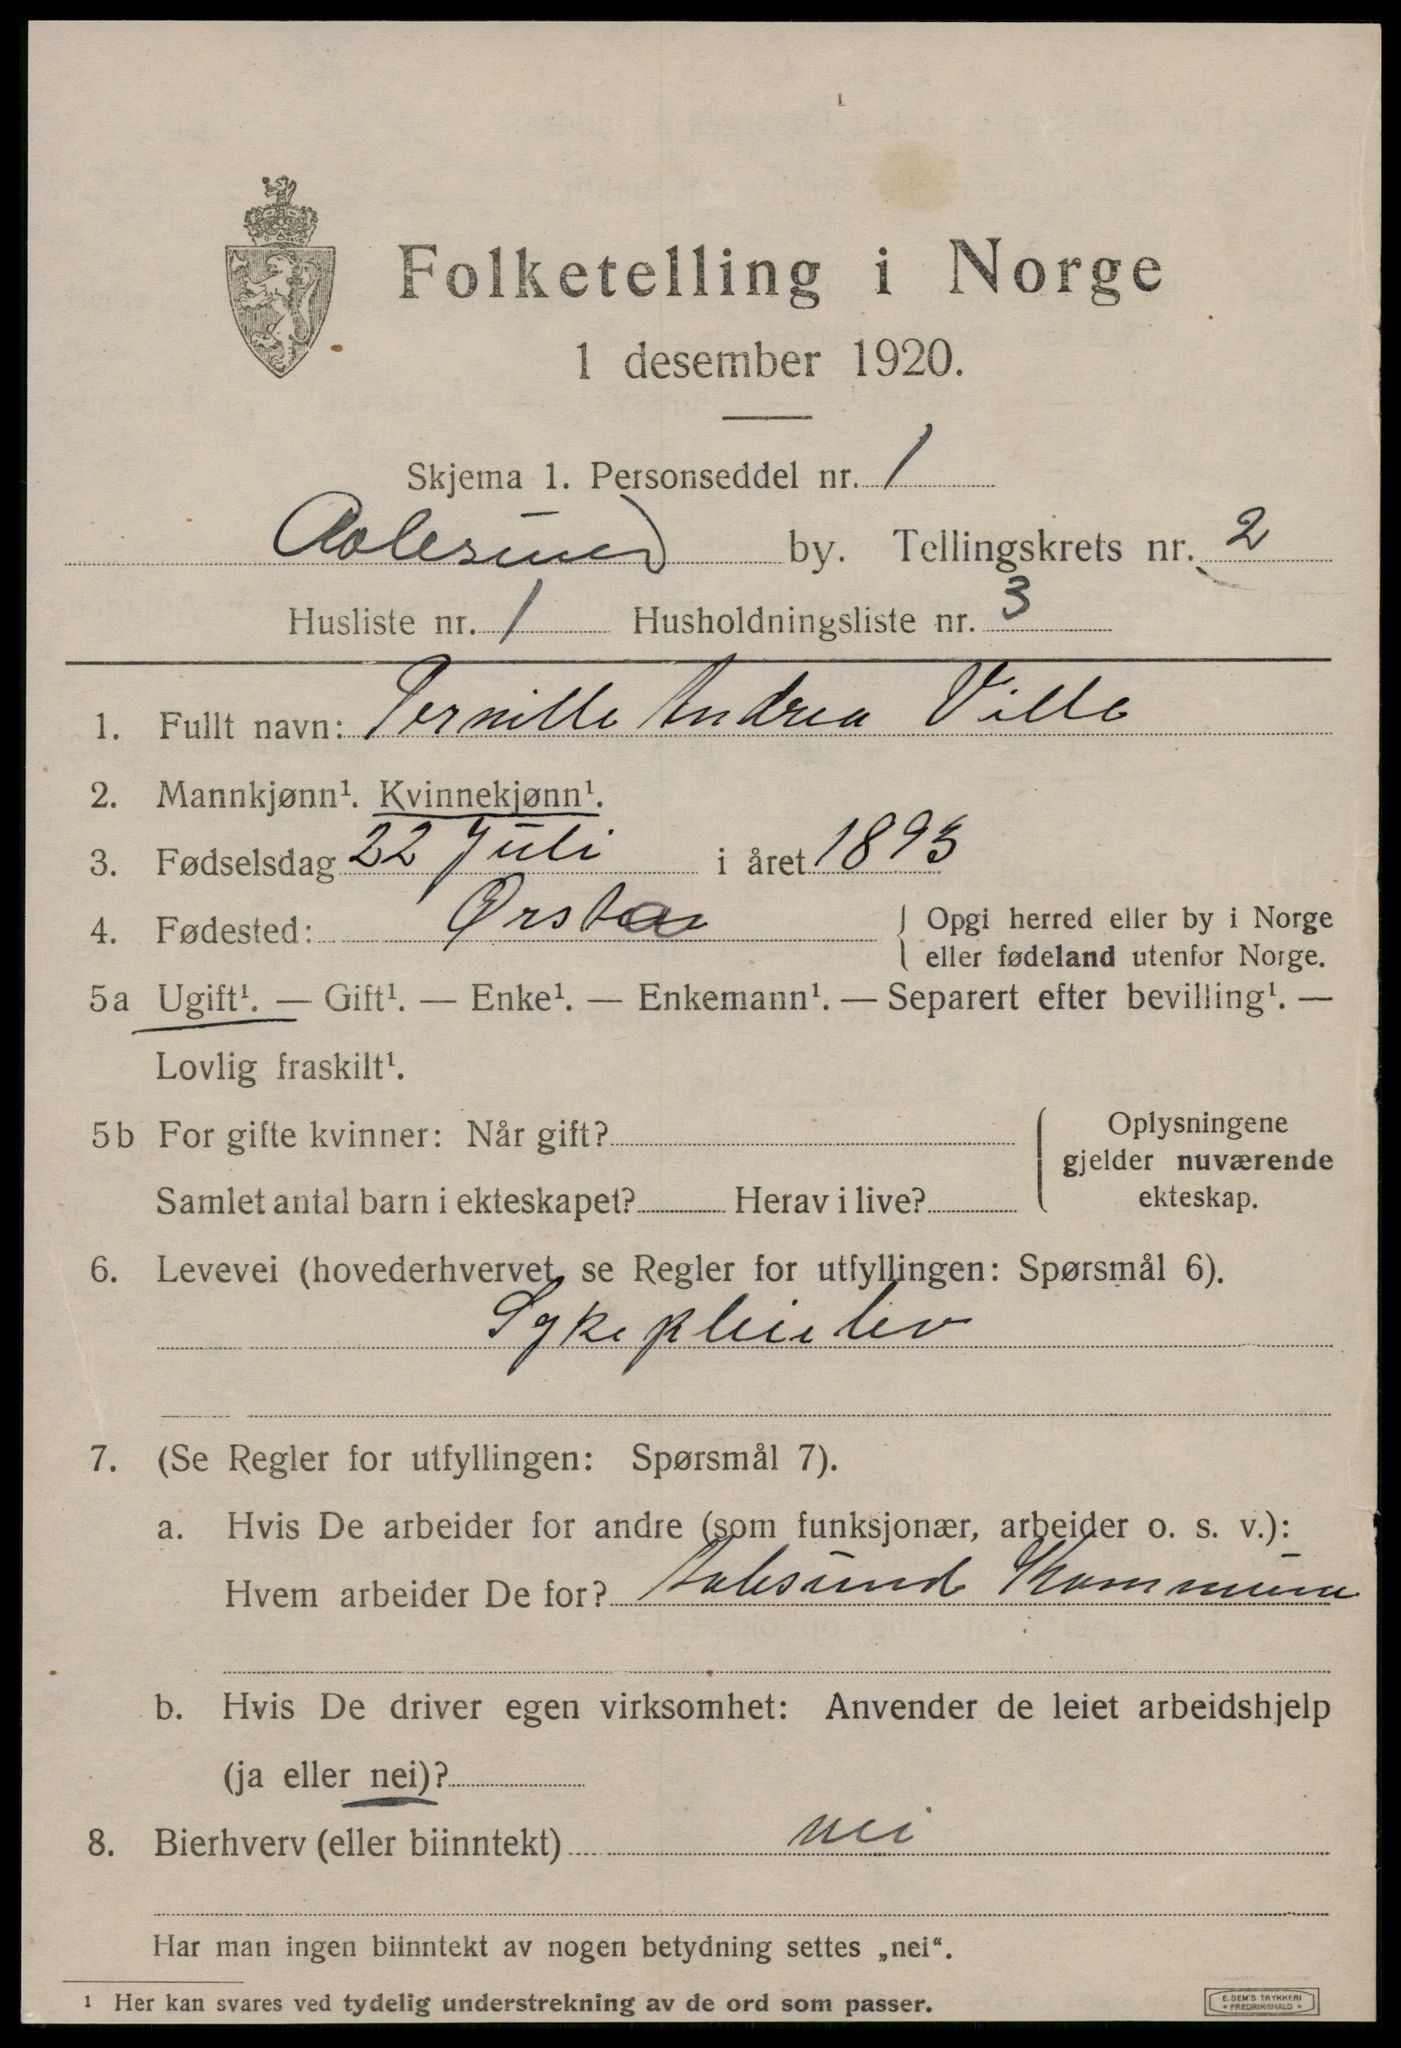 Folketelling i Norge
1 desember 1920.
Skjema 1. Personseddel nr. 1
Aalesund by. Tellingskrets nr. 2
Husliste nr. 1 Husholdningsliste nr. 3
1. Fullt navn: Pernille Andrea Velle
2. Mannkjønn¹. Kvinnekjønn¹.
3. Fødselsdag 22 Juli i året 1893
4. Fødested: Ørsta { Opgi herred eller by i Norge
eller fødeland utenfor Norge.
5a Ugift¹. — Gift¹. — Enke¹. — Enkemann¹. — Separert efter bevilling¹. —
Lovlig fraskilt¹.
5b For gifte kvinner: Når gift?
Samlet antal barn i ekteskapet? Herav i live?
Oplysningene
gjelder nuværende
ekteskap.
6. Levevei (hovederhvervet, se Regler for utfyllingen: Spørsmål 6).
Sykepleielev
7. (Se Regler for utfyllingen: Spørsmål 7).
a. Hvis De arbeider for andre (som funksjonær, arbeider o. s. v.):
Hvem arbeider De for? Aalesund Kommune
b. Hvis De driver egen virksomhet: Anvender de leiet arbeidshjelp
(ja eller nei)?
8. Bierhverv (eller biinntekt) nei
Har man ingen biinntekt av nogen betydning settes „nei“.
¹ Her kan svares ved tydelig understrekning av de ord som passer.
E. SEM'S TRYKKERI
FREDRIKSHALD